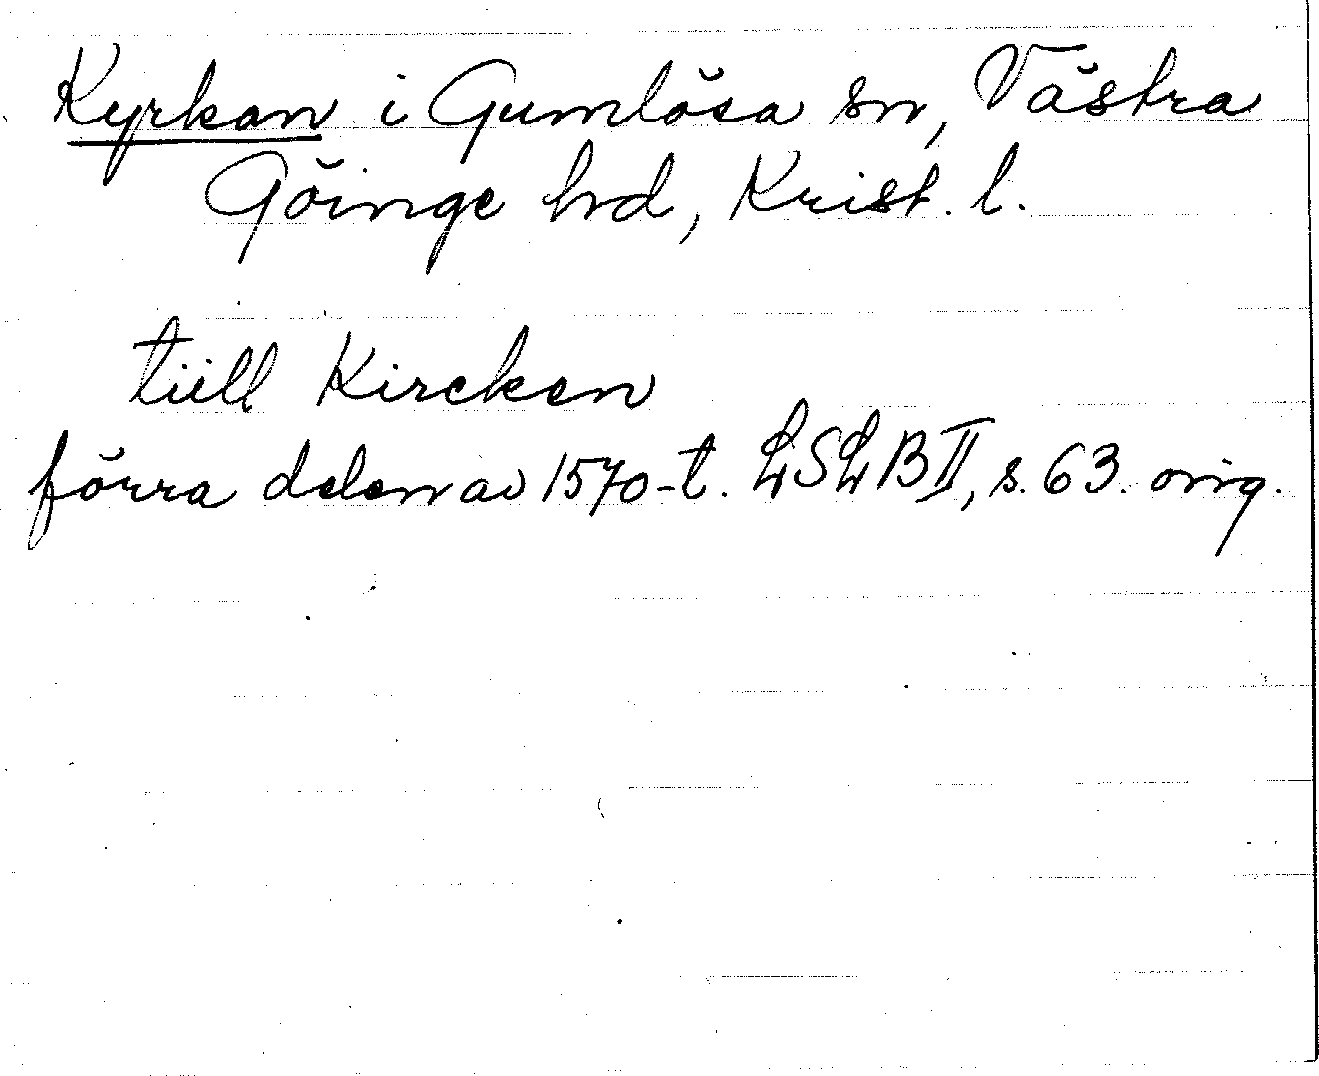 Kyrkan i Gumlösa sn, Västra
Göinge hd, Krist. l.
tiill Kircken
förra delen av 1570-t. LSLB II, s. 63. orig.